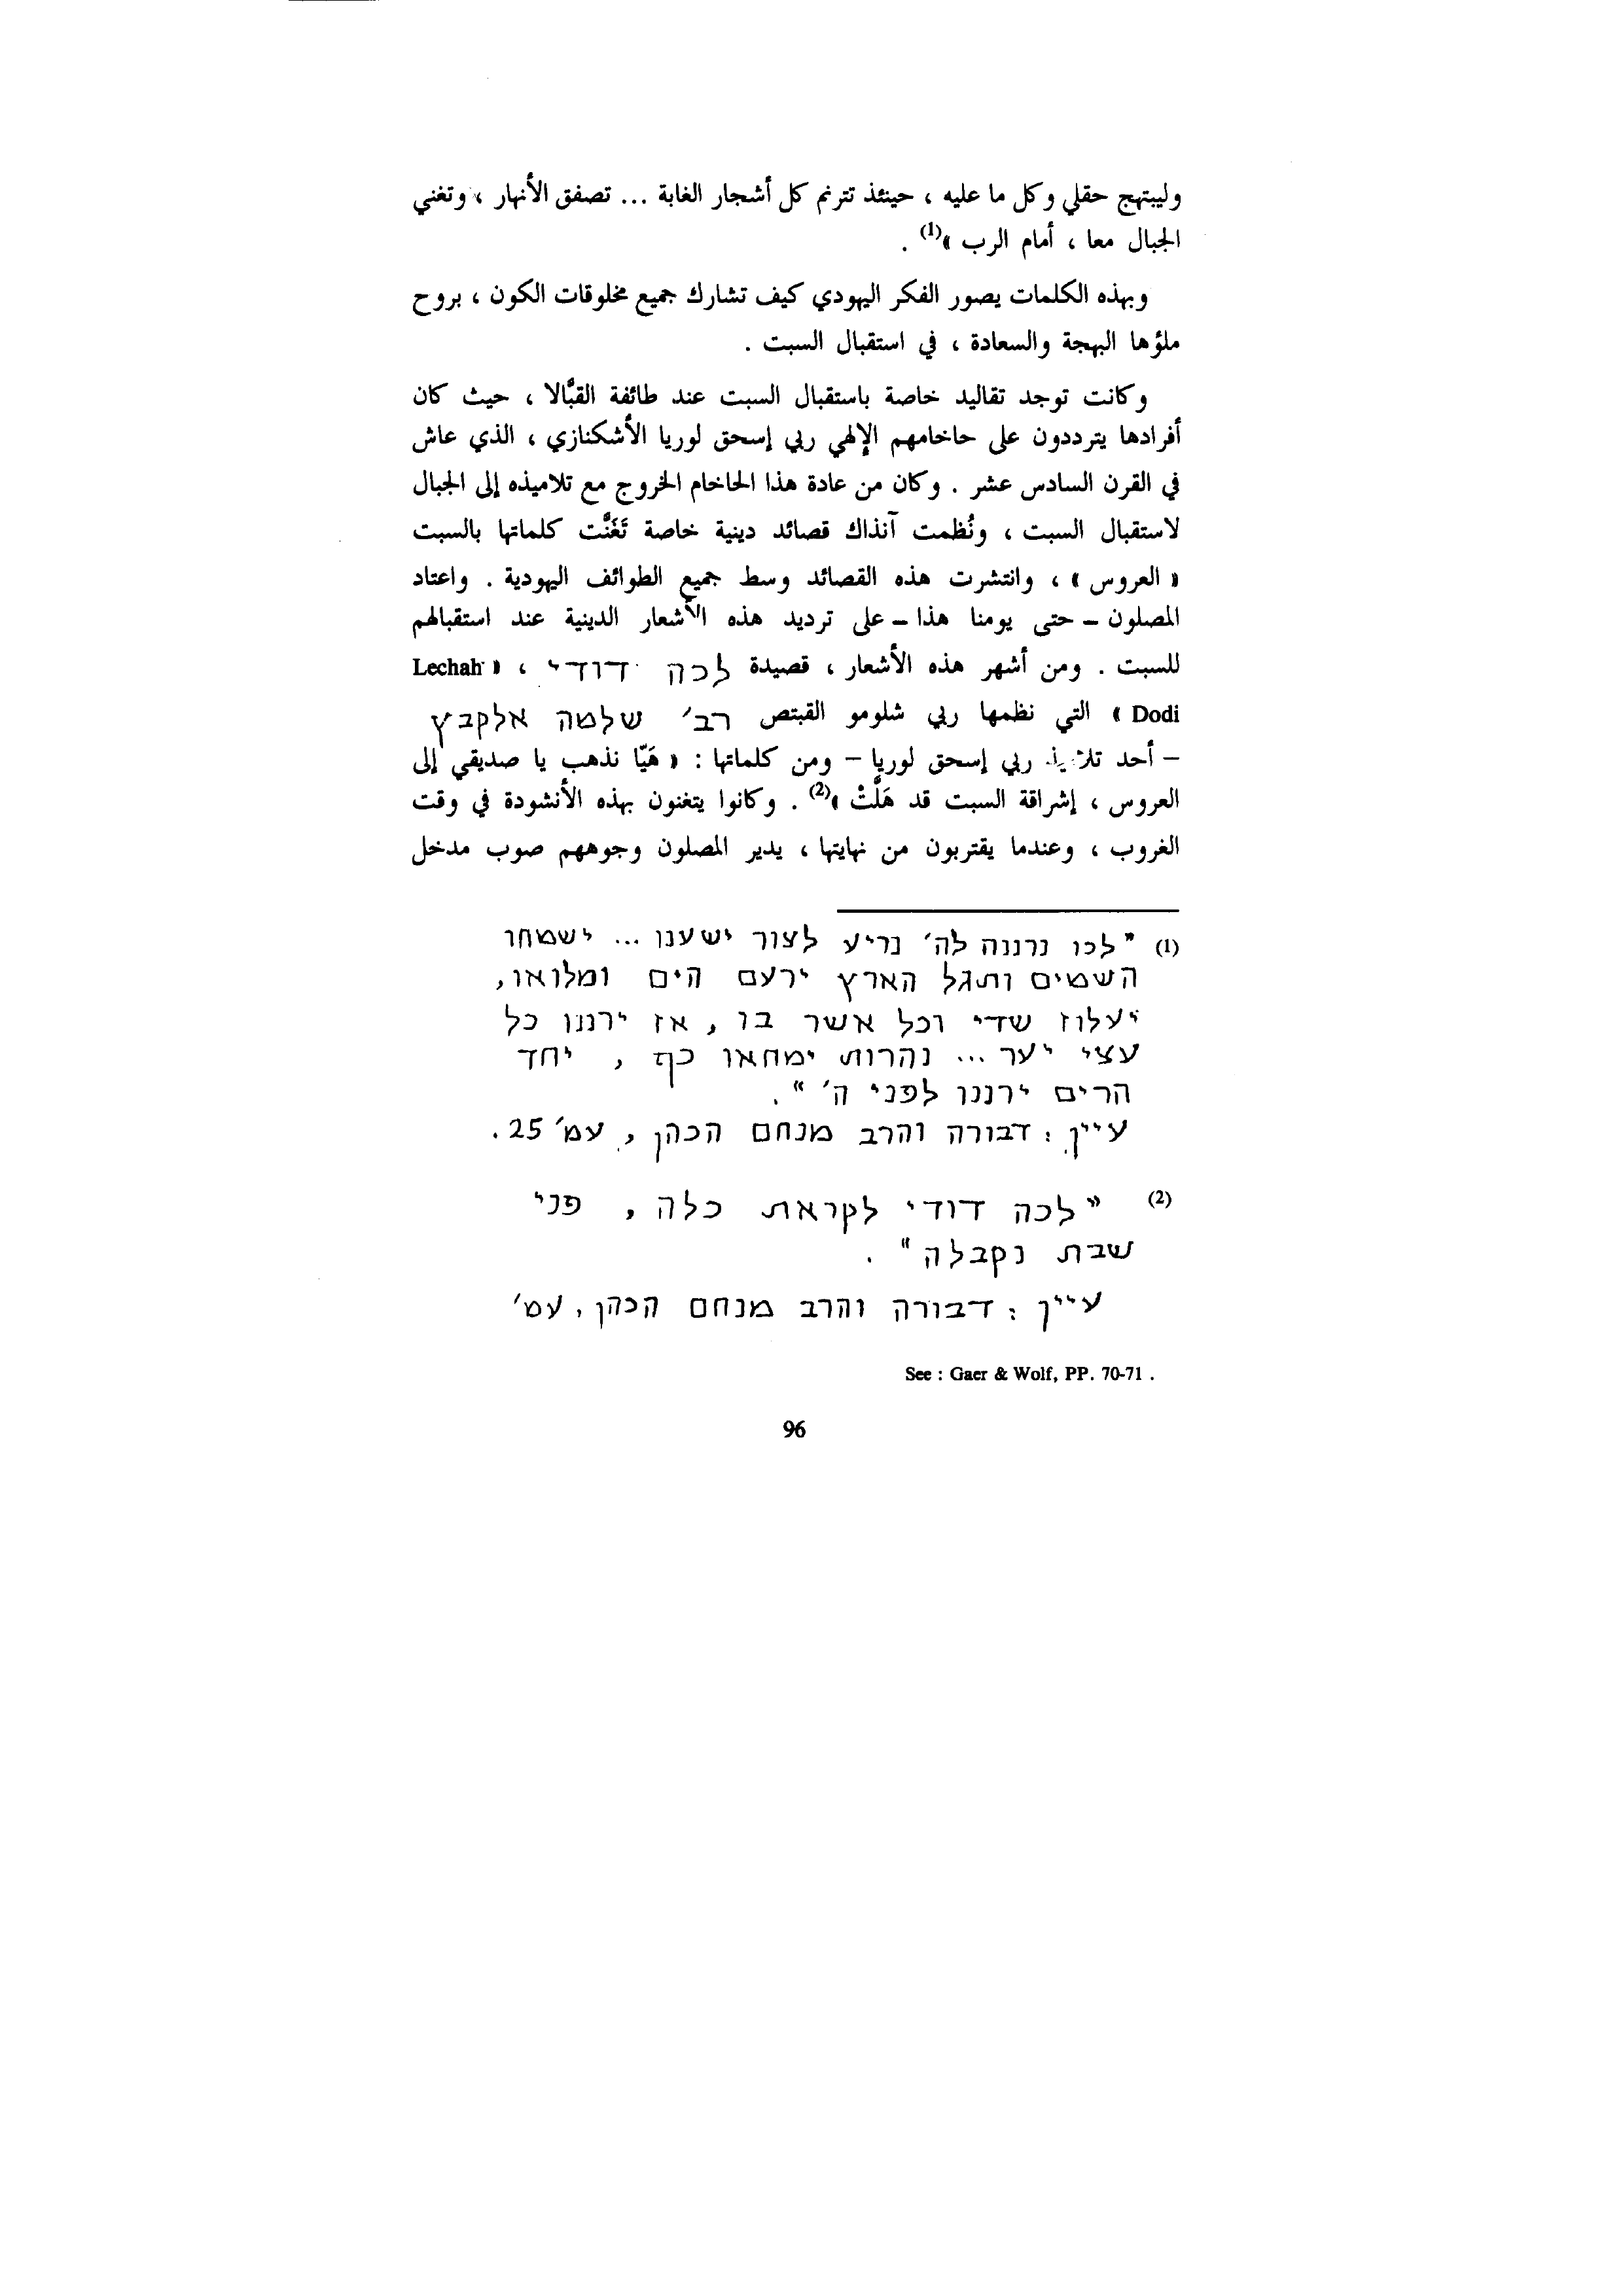 وليبتهج حقلي وكل ما عليه ، حينئذ تترنم كل أشجار الغابة ... تصفق الأنهار ، وتغني
الجبال معا ، أمام الرب »(1) .
وبهذه الكلمات يصور الفكر اليهودي كيف تشارك جميع مخلوقات الكون ، بروح
ملؤها البهجة والسعادة ، في استقبال السبت .
وكانت توجد تقاليد خاصة باستقبال السبت عند طائفة القبَّالا ، حيث كان
أفرادها يترددون على حاخامهم الإلهي ربي إسحق لوريا الأشكنازي ، الذي عاش
في القرن السادس عشر . وكان من عادة هذا الحاخام الخروج مع تلاميذه إلى الجبال
لاستقبال السبت ، ونُظمت آنذاك قصائد دينية خاصة تَغَنَّت كلماتها بالسبت
« العروس » ، وانتشرت هذه القصائد وسط جميع الطوائف اليهودية . واعتاد
المصلون – حتى يومنا هذا – على ترديد هذه الأشعار الدينية عند استقبالهم
للسبت . ومن أشهر هذه الأشعار ، قصيدة לכה דודי ، « Lechah
Dodi » التي نظمها ربي شلومو القبتص רב' שלמה אלקבץ
– أحد تلاميذ ربي إسحق لوريا – ومن كلماتها : « هَيّا نذهب يا صديقي إلى
العروس ، إشراقة السبت قد هَلَّتْ »(2) . وكانوا يتغنون بهذه الأنشودة في وقت
الغروب ، وعندما يقتربون من نهايتها ، يدير المصلون وجوههم صوب مدخل
(1) "לכו נרננה לה' נריע לצור ישענו ... ישמחו
השמים ותגל הארץ ירעם הים ומלואו,
יעלוז שדי וכל אשר בו, אז ירננו כל
עצי יער ... נהרות ימחאו כף, יחד
הרים ירננו לפני ה' ".
עיין : דבורה והרב מנחם הכהן, עמ' 25.
(2) "לכה דודי לקראת כלה, פני
שבת נקבלה".
עיין : דבורה והרב מנחם הכהן, עמ'
See : Gaer & Wolf, PP. 70-71 .
96